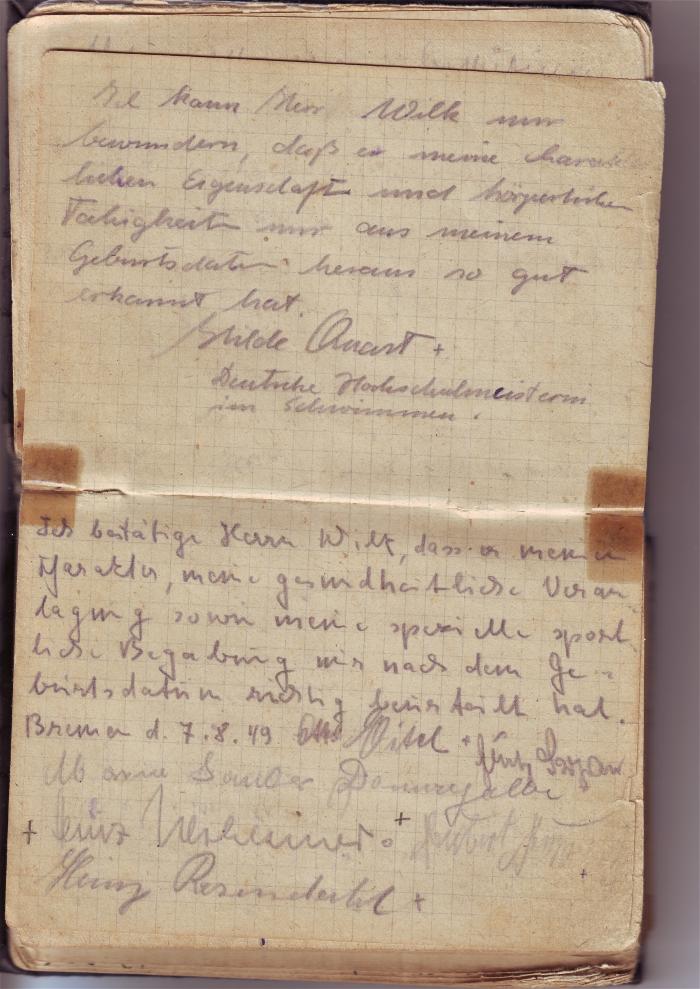 Ich kann Herr Wilk nur
bewundern, daß er meine charakter
lichen Eigenschaft und körperlichen
Fähigkeit nur aus meinem
Geburtsdatum heraus so gut
erkannt hat.
Hilde Quast +
Deutsche Hochschulmeisterin
im Schwimmen.
Ich bestätige Herrn Wilk, dass er meinen
Charakter, meine gesundheitliche Veran-
lagung sowie meine spezielle sport
liche Begabung nur nach dem Ge-
burtsdatum richtig beurteilt hat.
Bremen d. 7.8.49 Otto Vitel + Fritz
Marie Sander
+ Heinz +
Heinz Rosendahl +